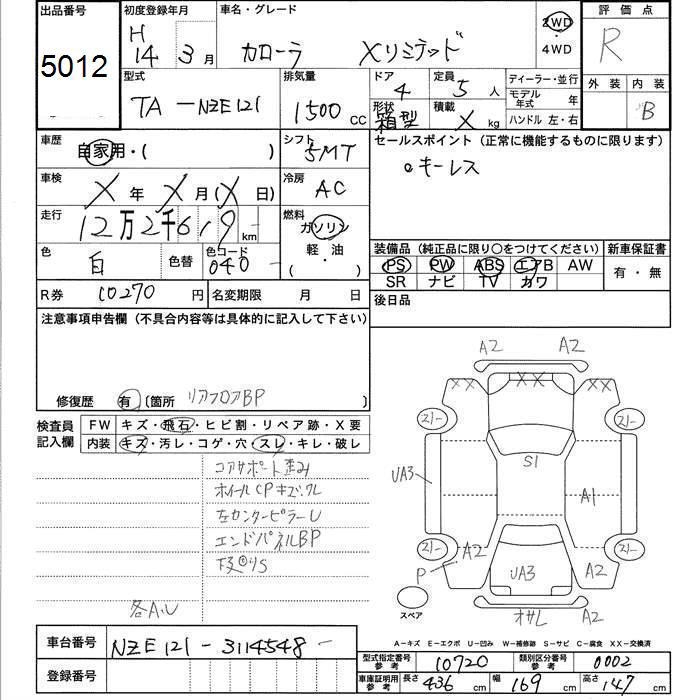 出品番号 初度登録年月 車名・グレード 評価点
5012 H 14 3月 カローラ Xリミテッド 2WD ・ 4WD R
型式 排気量 ドア 定員 ディーラー・並行 外装 内装
TA-NZE121 1500 CC 4 5人 モデル年式 年 B
形状 積載 ハンドル 左・右
箱型 X kg
車歴 自家用・( ) シフト 5MT セールスポイント (正常に機能するものに限ります)
車検 X年 X月(X日) 冷房 AC ○キーレス
走行 12万2千619 km 燃料 ガソリン 軽・油 ( )
色 白 色替 色コード 040- 装備品 (純正品に限り○をつけてください) 新車保証書
PS PW ABS エアB AW 有・無
SR ナビ TV カワ
R券 10270円 名変期限 月 日 後日品
注意事項申告欄 (不具合内容等は具体的に記入して下さい)
修復歴 有 〔箇所 リアフロアBP 〕
検査員記入欄 FW キズ・飛石・ヒビ割・リペア跡・X要
内装 キズ・汚レ・コゲ・穴・スレ・キレ・破レ
コアサポート歪み
ホイールCPキズ、クレ
左センターピラーU
エンドパネルBP
下廻りS
各A.U
A2 A2
XX XX
21- 21-
S1
UA3 A1
21- 21-
A2 P UA3 A2
スペア オサレ A2
A-キズ E-エクボ U-凹み W-補修跡 S-サビ C-腐食 XX-交換済
車台番号 NZE121-3114548-
登録番号
型式指定番号 参考 10720 類別区分番号 参考 0002
車庫証明用 参考 長さ 436 cm 幅 169 cm 高さ 147 cm